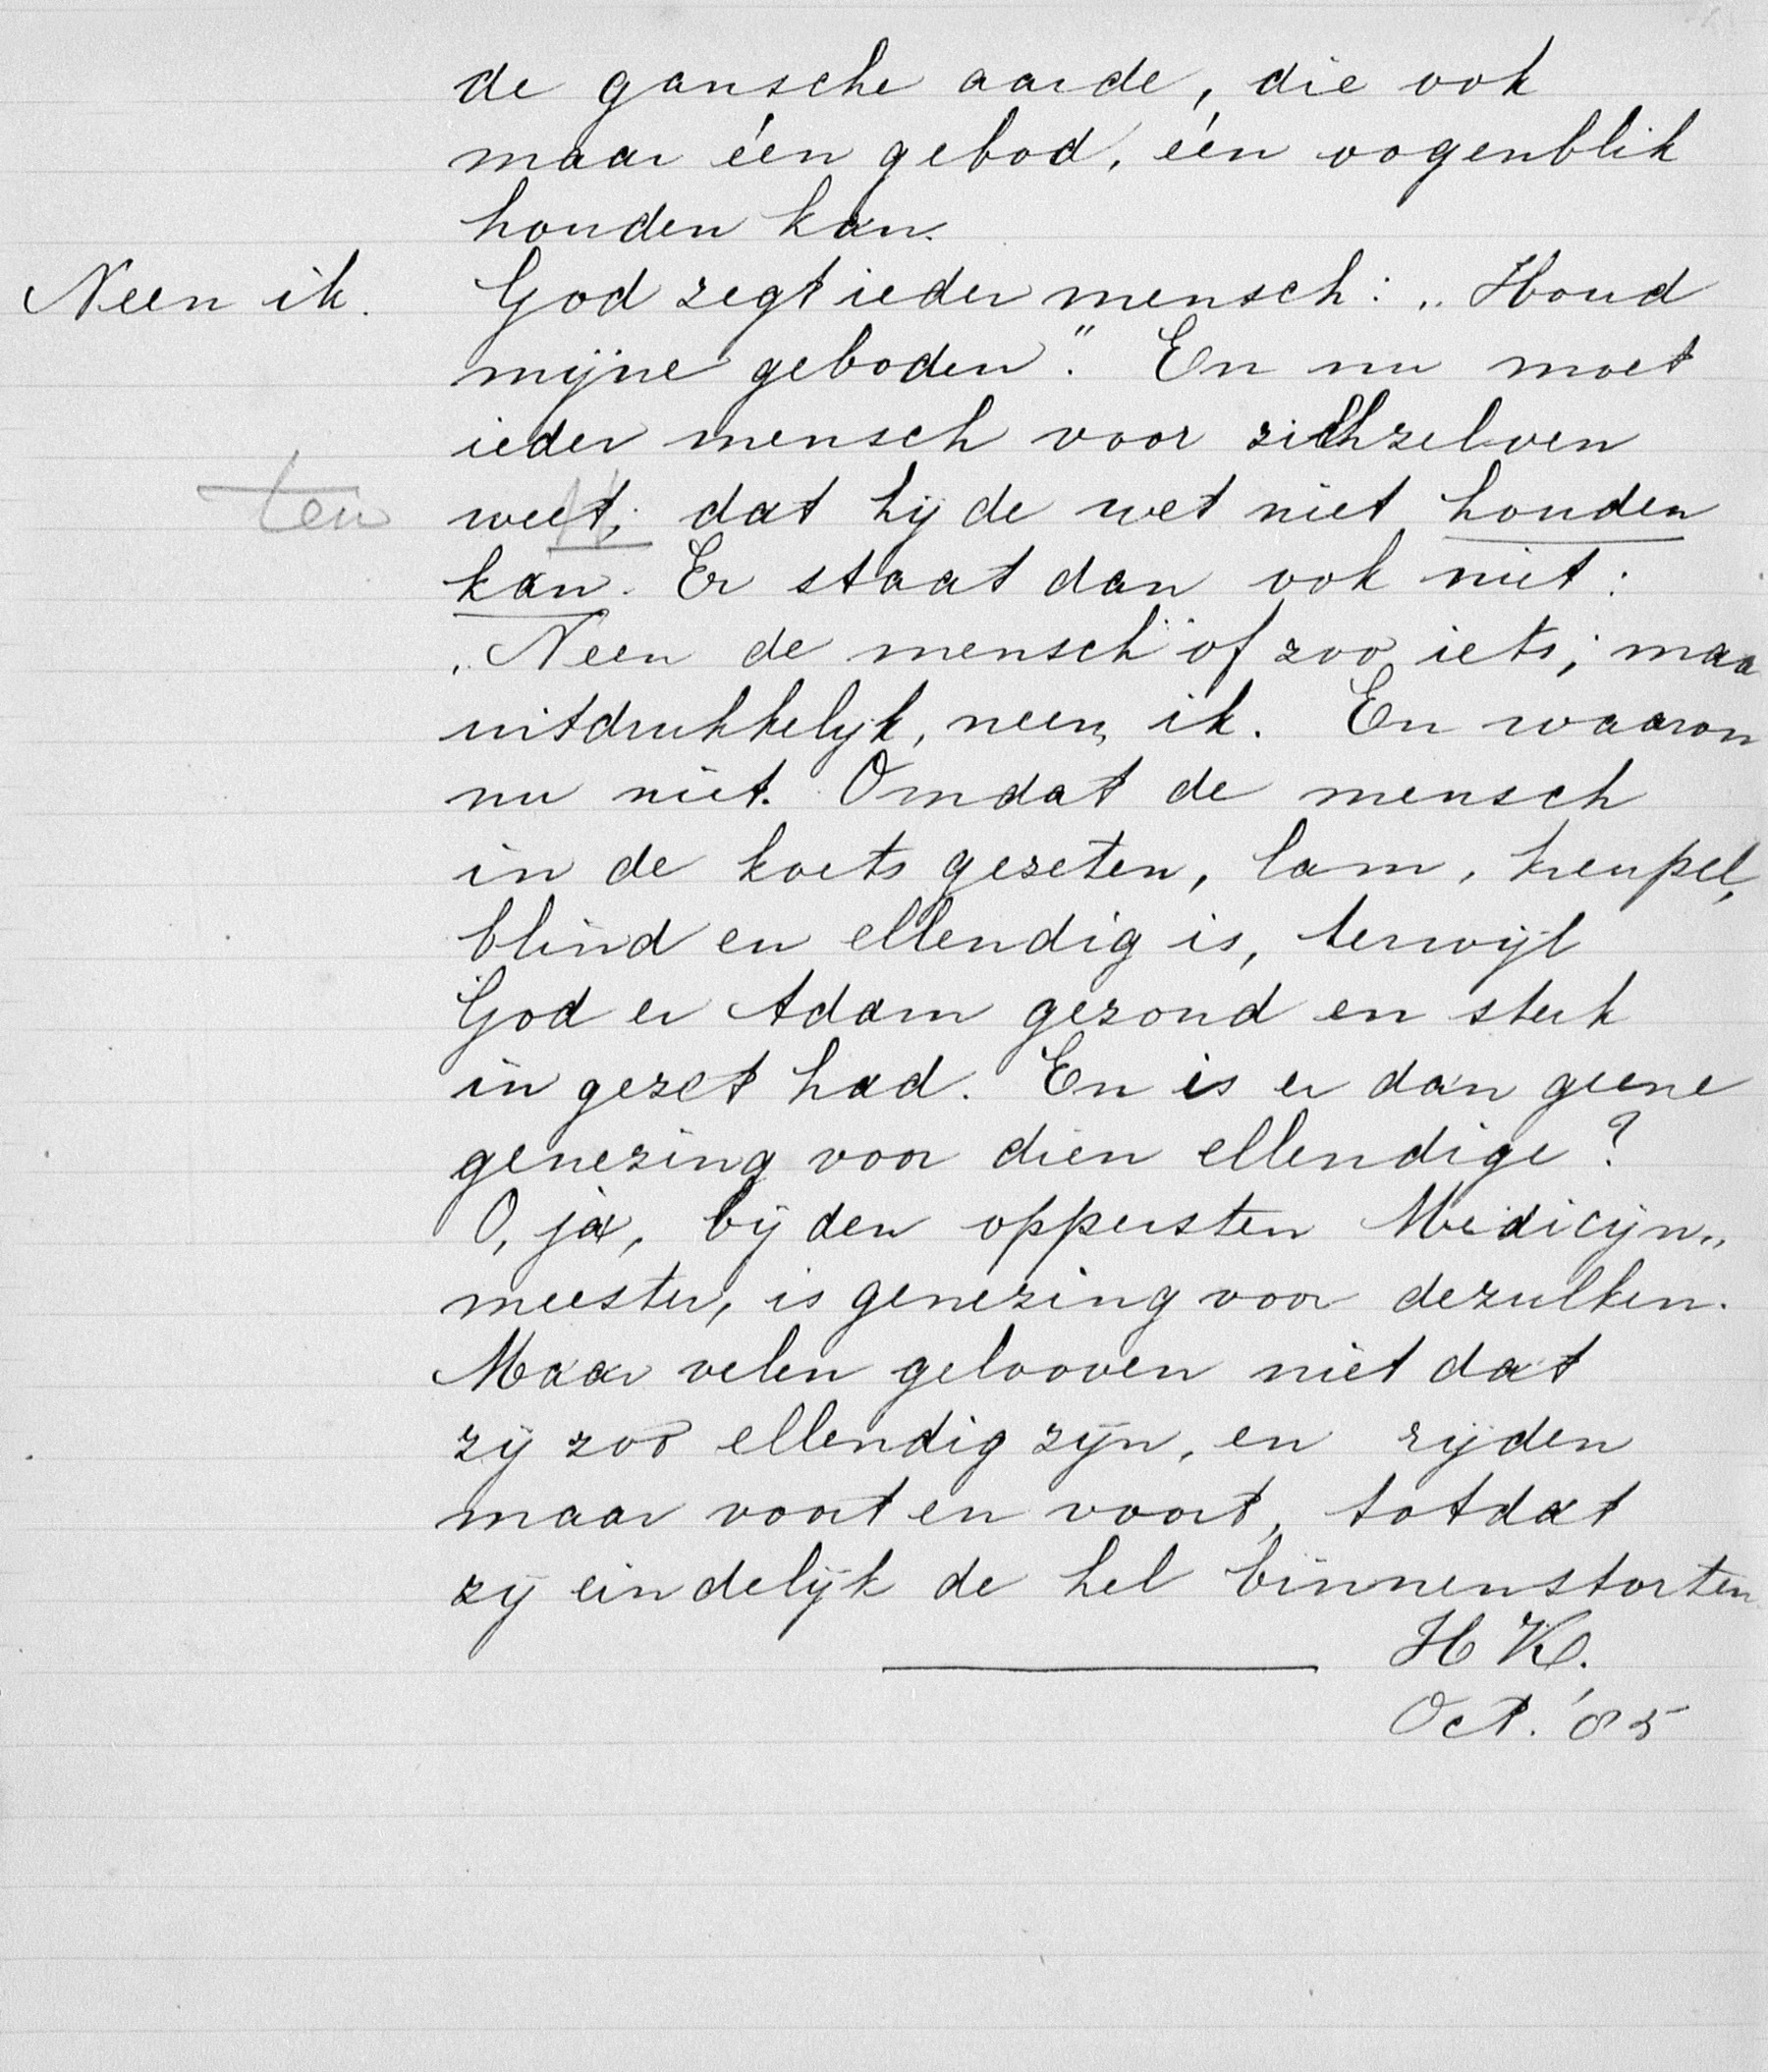 de gansche aarde, die ook
maar één gebod, één oogenblik
houden kan.
Neen ik. God zegt ieder mensch: „Houd
mijne geboden". En nu moet
ieder mensch voor zichzelven
ten weet, dat hij de wet niet houden
kan. Er staat dan ook niet:
„Neen de mensch" of zoo iets; maa
uitdrukkelijk, neen, ik. En waarom
nu niet. Omdat de mensch
in de koets gezeten, lam, kreupel,
blind en ellendig is, terwijl
God er Adam gezond en sterk
in gezet had. En is er dan geene
genezing voor dien ellendige?
O, ja, bij den oppersten Medicijn„
meester, is genezing voor dezulken.
Maar velen gelooven niet dat
zij zoo ellendig zijn, en rijden
maar voort en voort, totdat
zij eindelijk de hel binnenstorten.
H K.
Oct. '85